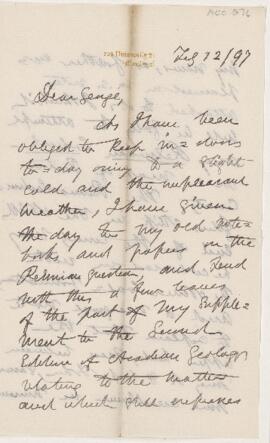 Feby 12/97
Dear George,
As I have been
obliged to keep in=doors
to=day owing to a slight
cold and the unpleasant
weather, I have given
the day to my old note=
books and papers on the
Permian question, and send
with this a few leaves
of the part of my Supple=
ment to the Second
Edition of Acadian Geology
relating to the matter
and which still expresses